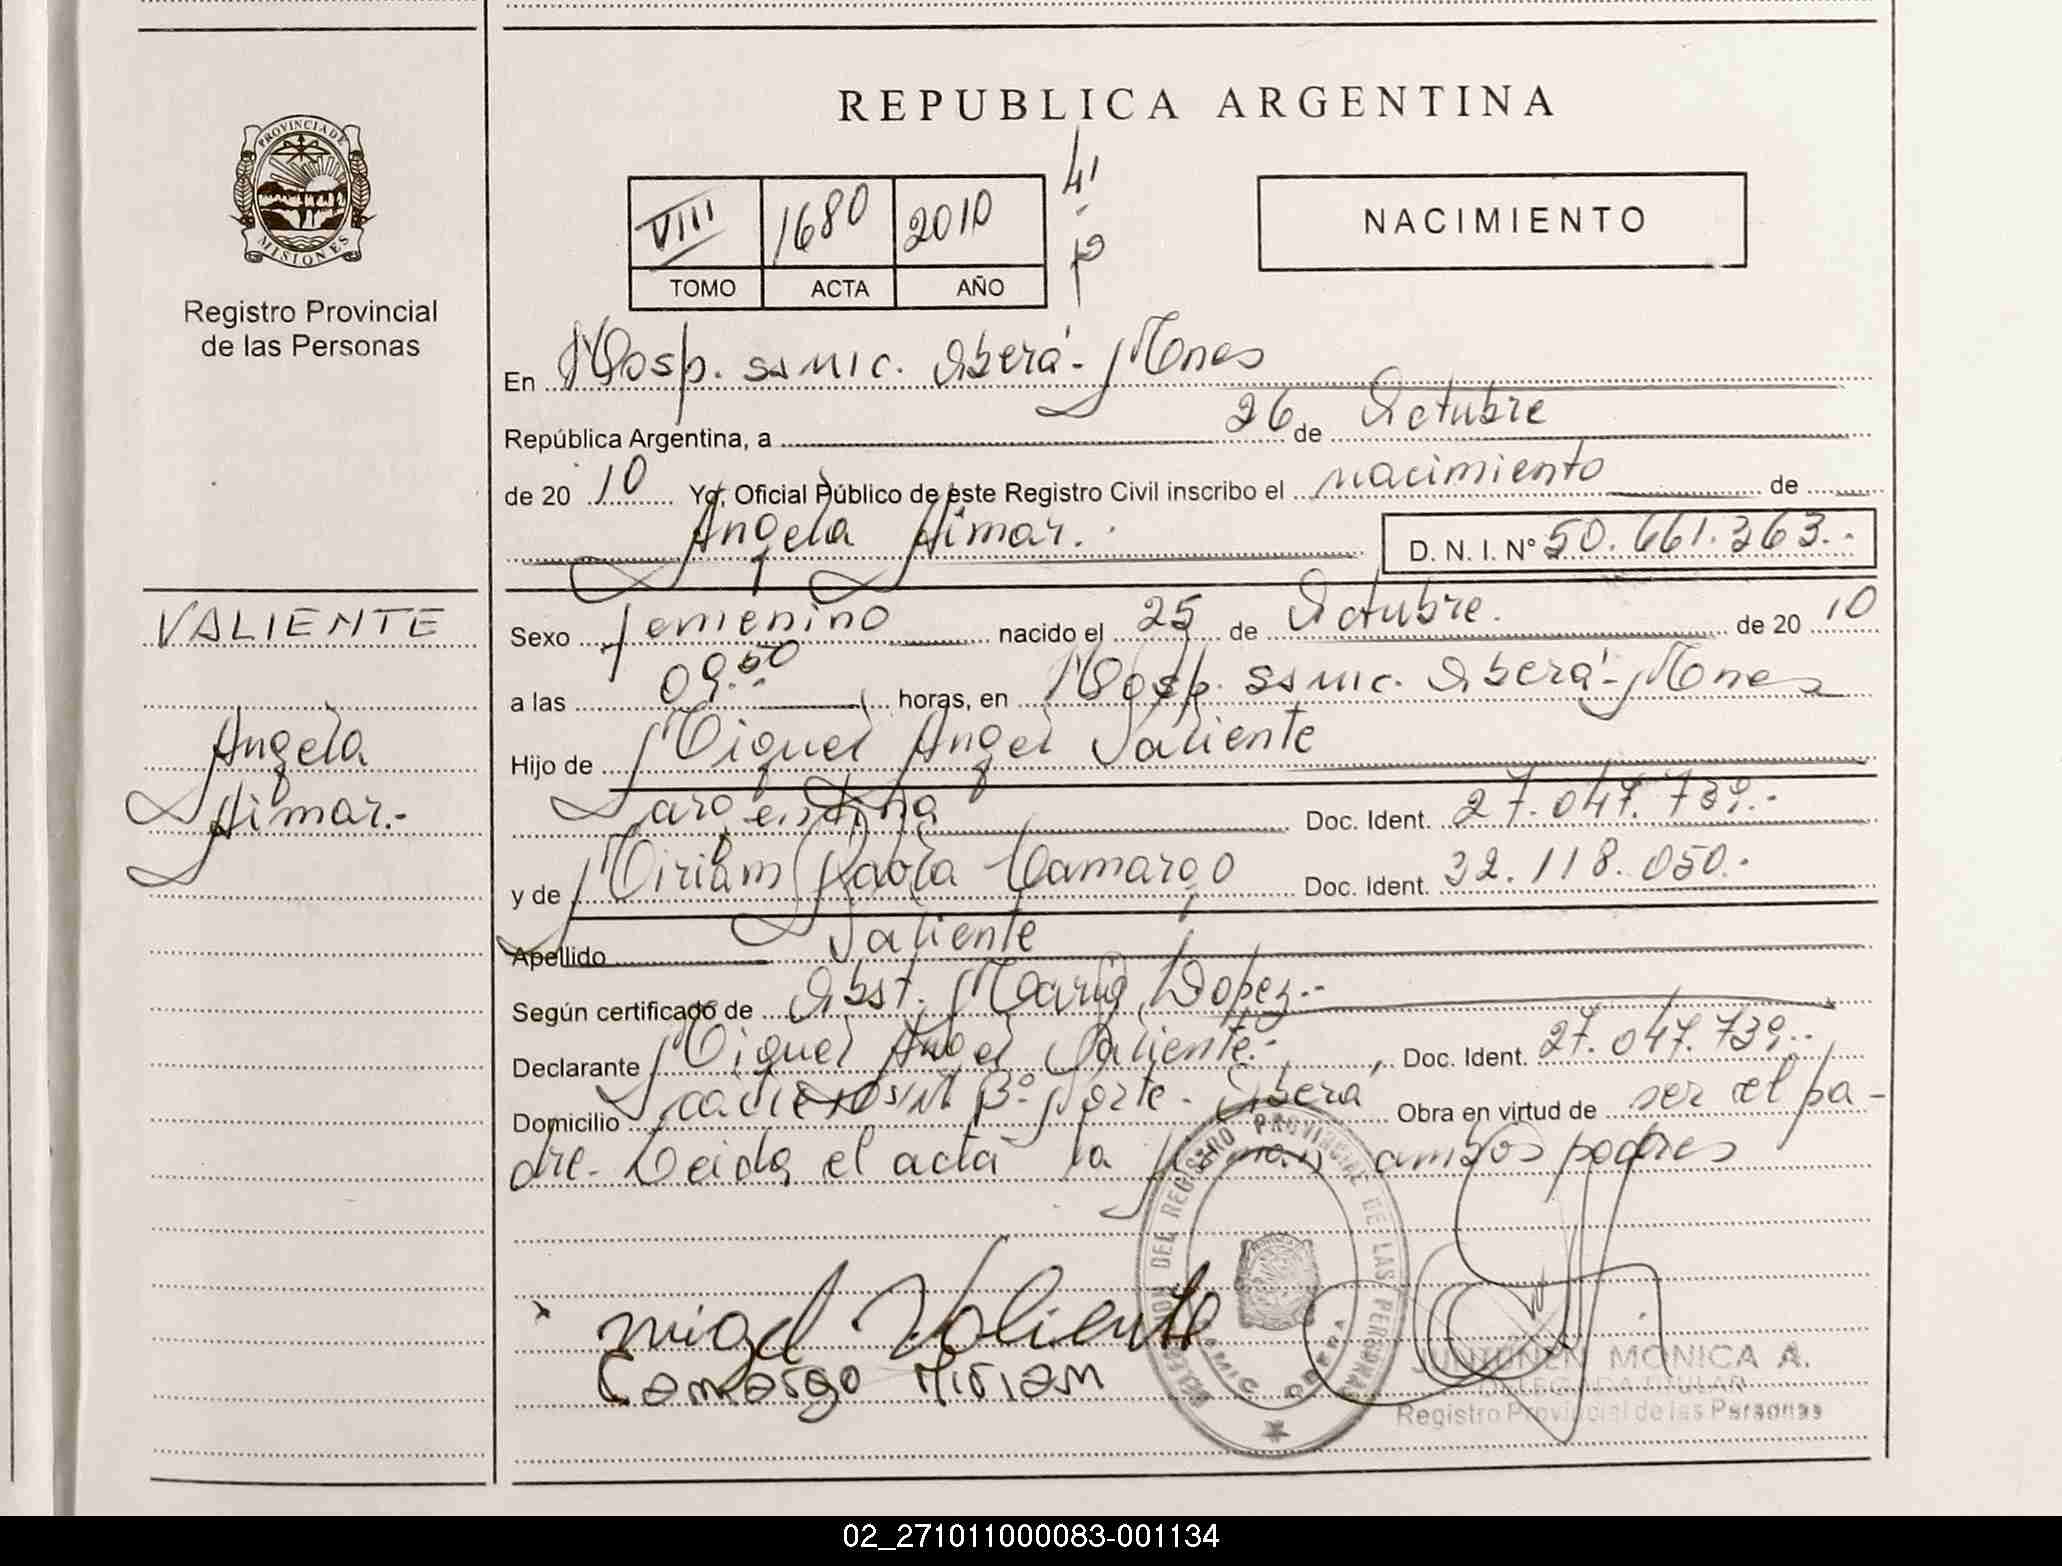 REPUBLICA ARGENTINA
PROVINCIA DE
MISIONES
Registro Provincial
de las Personas
VIII 1680 2010
TOMO ACTA AÑO
NACIMIENTO
En Hosp. SAMIC. Oberá - Mnes
República Argentina, a 26 de Octubre
de 20 10 Yo, Oficial Público de este Registro Civil inscribo el nacimiento de
Angela Aimar.
D. N. I. Nº 50.661.363.-
VALIENTE
Angela
Aimar.-
Sexo femenino nacido el 25 de Octubre. de 20 10
a las 09.50 horas, en Hosp. SAMIC. Oberá - Mnes
Hijo de Miguel Angel Valiente
argentina Doc. Ident. 27.047.739.-
y de Miriam Paola Camargo Doc. Ident. 32.118.050.-
Apellido Valiente
Según certificado de Obst. Maria Lopez.-
Declarante Miguel Angel Valiente.-, Doc. Ident. 27.047.739.-
Domicilio Bº Norte - Oberá Obra en virtud de ser el pa-
dre - Leida el acta la firman ambos padres
migel Valiente
Camargo Miriam
DELEGACION DEL REGISTRO PROVINCIAL DE LAS PERSONAS
SAMIC OBERA
JUNTUNEN MONICA A.
DELEGADA TITULAR
Registro Provincial de las Personas
02_271011000083-001134